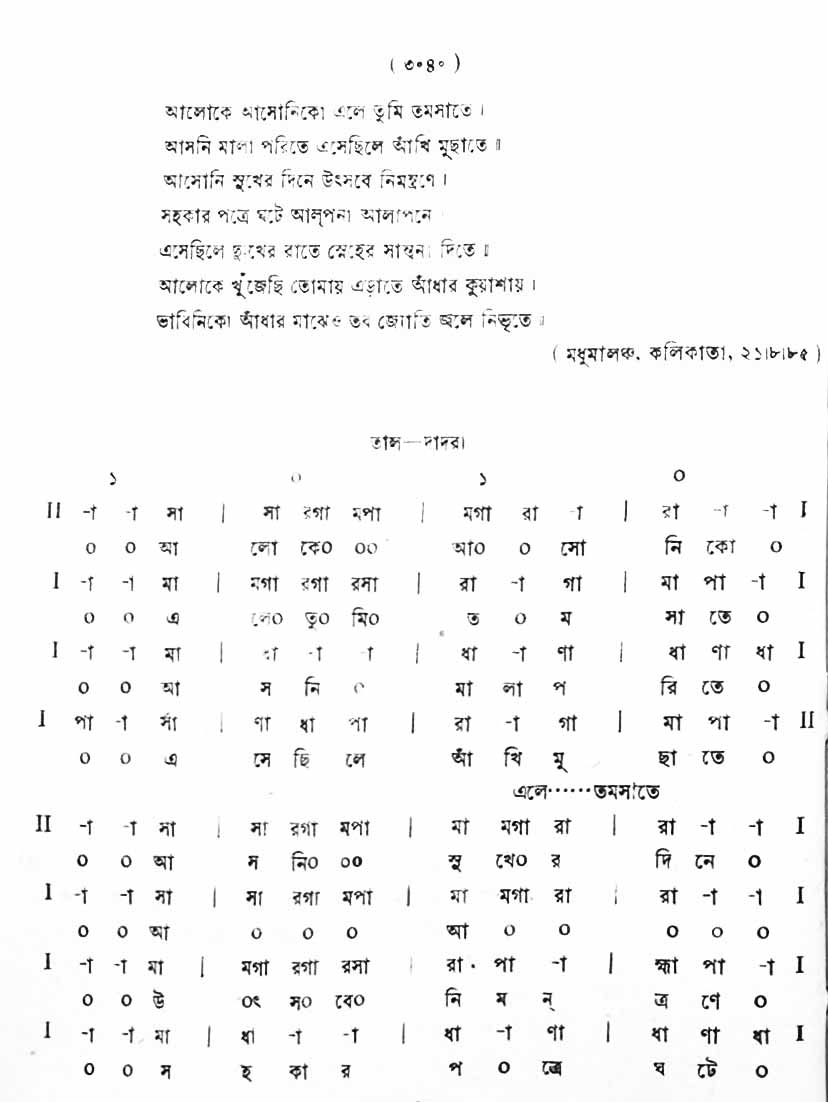 ( ৩০৪০ )
আলোকে আসোনিকো এলে তুমি তমসাতে ।
আসনি মালা পরিতে এসেছিলে আঁখি মুছাতে ॥
আসোনি সুখের দিনে উৎসবে নিমন্ত্রণে ।
সহকার পত্রে ঘটে আল্পনা আলাপনে
এসেছিলে দুঃখের রাতে স্নেহের সান্ত্বনা দিতে ॥
আলোকে খুঁজেছি তোমায় এড়াতে আঁধার কুয়াশায় ।
ভাবিনিকো আঁধার মাঝেও তব জ্যোতি জ্বলে নিভৃতে ॥
( মধুমালঞ্চ, কলিকাতা, ২১।৮।৮৫ )
তাল—দাদরা
১ ০ ১ ০
II -া -া সা | সা রগা মপা | মগা রা -া | রা -া -া I
০ ০ আ লো কে০ ০০ আ০ ০ সো নি কো ০
I -া -া মা | মগা রগা রসা | রা -া গা | মা পা -া I
০ ০ এ লে০ তু০ মি০ ত ০ ম সা তে ০
I -া -া মা | ধা -া -া | ধা -া ণা | ধা ণা ধা I
০ ০ আ স নি ০ মা লা প রি তে ০
I পা -া র্সা | ণা ধা পা | রা -া গা | মা পা -া II
০ ০ এ সে ছি লে আঁ খি মু ছা তে ০
এলে······তমসাতে
II -া -া সা | সা রগা মপা | মা মগা রা | রা -া -া I
০ ০ আ স নি০ ০০ সু খে০ র দি নে ০
I -া -া সা | সা রগা মপা | মা মগা রা | রা -া -া I
০ ০ আ ০ ০ ০ আ ০ ০ ০ ০ ০
I -া -া মা | মগা রগা রসা | রা পা -া | হ্মা পা -া I
০ ০ উ ০ৎ স০ বে০ নি ম ন্ ত্র ণে ০
I -া -া মা | ধা -া -া | ধা -া ণা | ধা ণা ধা I
০ ০ স হ কা র প ০ ত্রে ঘ টে ০